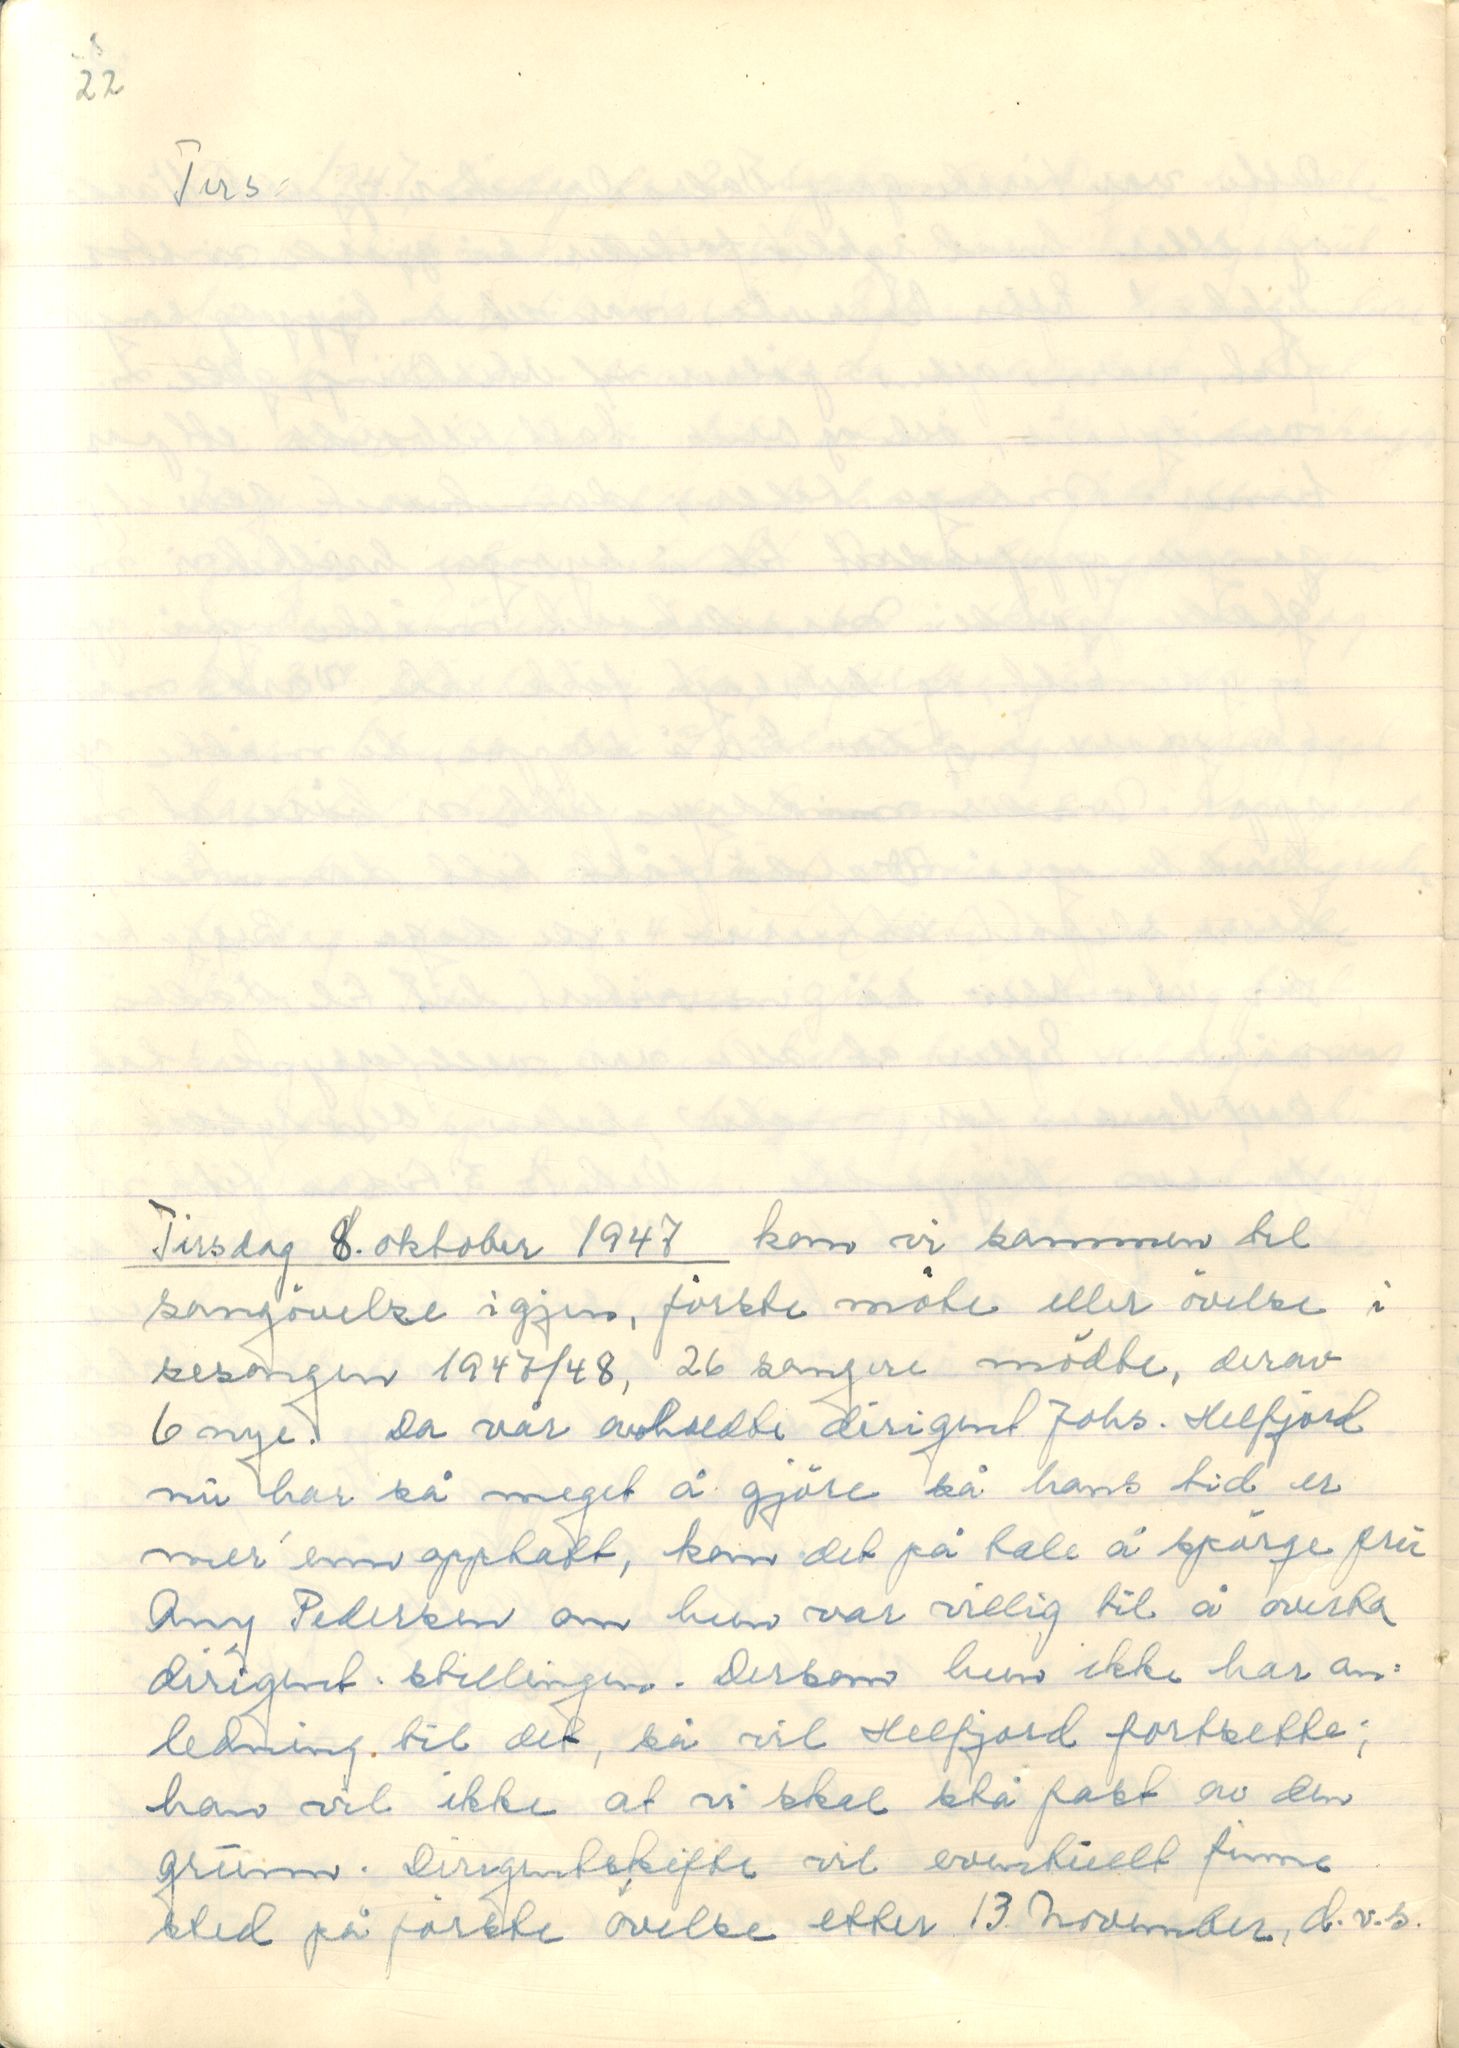 22
Tirs=
Tirsdag 8. oktober 1947 kom vi sammen til
sangövelse igjen, förste möte eller övelse i
sesongen 1947/48, 26 sangere mödte, derav
6 nye. Da vår avholdte dirigent Johs. Helfjord
nu har så meget å gjöre så hans tid er
mer enn opptatt, kom det på tale å spörge fru
Amy Pedersen om hun var villig til å overta
dirigent-stillingen. Dersom hun ikke har an=
ledning til det, så vil Helfjord fortsette;
han vil ikke at vi skal stå fast av den
grunn. Dirigentskifte vil eventuelt finne
sted på förste övelse etter 13. November, d.v.s.